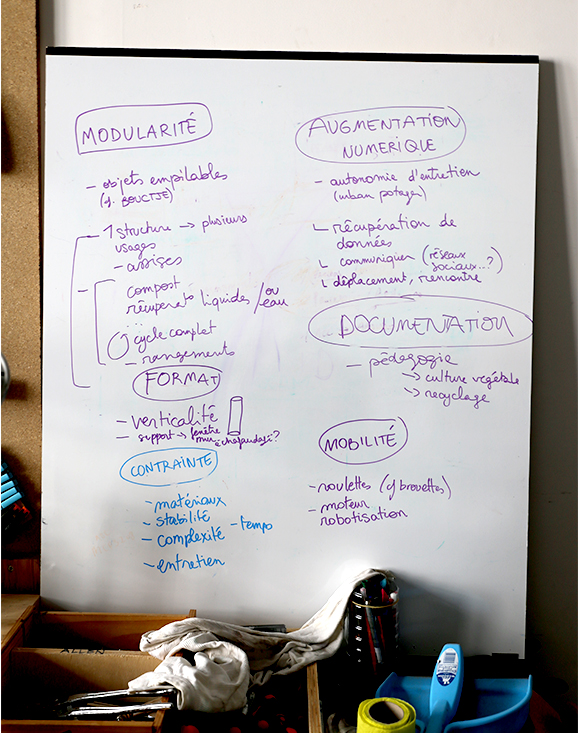 MODULARITÉ
- objets empilables
(cf. BOUCTJE)
- 1 structure → plusieurs
usages
- assises
compost
récuperet° liquides / ou
eau
...
cycle complet
- rangements
FORMAT
- verticalité
- support → fenêtre
mur échafaudage?
CONTRAINTE
- matériaux
- stabilité
- complexité - temps
- entretien
AUGMENTATION
NUMERIQUE
- autonomie d'entretien
(urban potager)
récupération de
données
communiquer (réseaux
sociaux...?)
déplacement, rencontre
DOCUMENTATION
- pédagogie
→ culture végétale
→ recyclage
MOBILITÉ
- roulettes (cf brouettes)
- moteur
robotisation
ALLEN